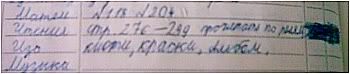 Матем №118 №120
Чтение стр. 276-299 прочитать по ролям
Изо кисти, краски, альбом.
Музыка